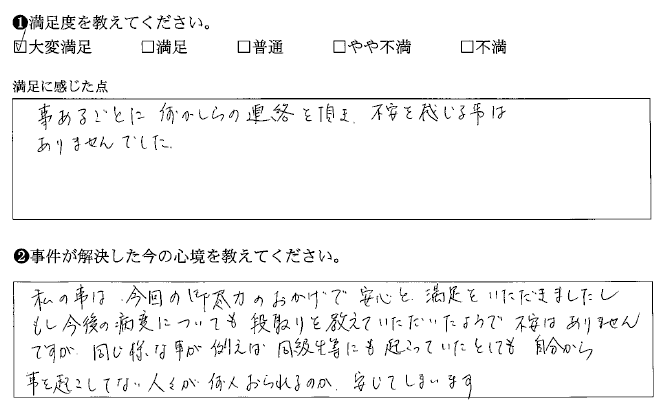 ❶満足度を教えてください。
☑大変満足 □満足 □普通 □やや不満 □不満
満足に感じた点
事あるごとに 何かしらの連絡を頂き、不安を感じる事は
ありませんでした。
❷事件が解決した今の心境を教えてください。
私の事は、今回の御尽力のおかげで 安心と、満足を いただきましたし
もし今後の病変についても 段取りを教えていただいたようで 不安はありません
ですが、同じ様な事が 例えば 同級生等にも起こっていたとしても 自分から
事を起こしてない人々が何人おられるのか、案じてしまいます